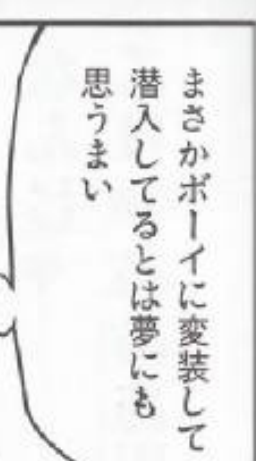 まさかボーイに変装して
潜入してるとは夢にも
思うまい